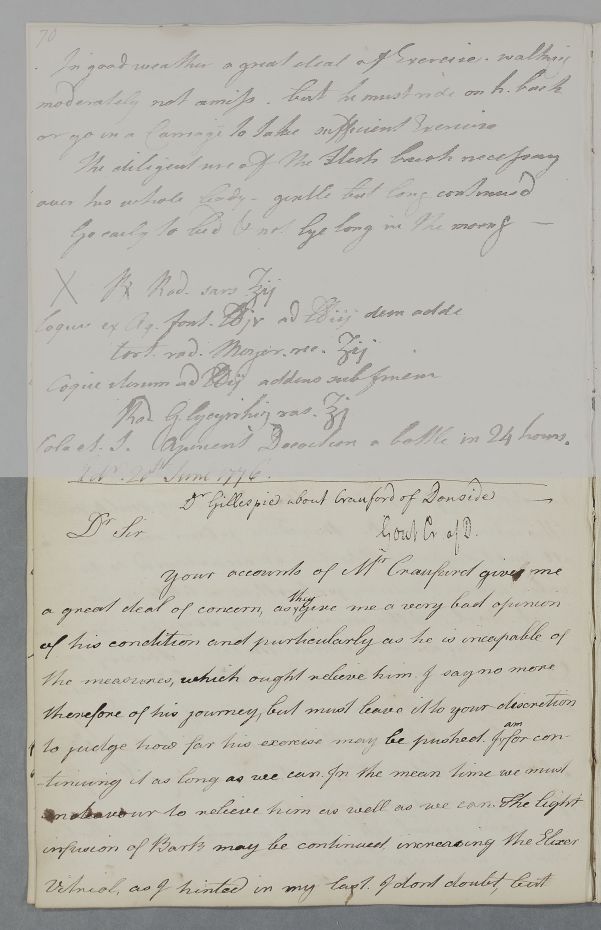 70
In good weather a great deal of Exercise. walking
moderately not amiss. but he must ride on h. back
or go in a Carriage to take sufficient Exercise
The diligent use of the Flesh brush necessary
over his whole body - gentle but long continued
Go early to bed & not lye long in the morng —
X ℞ Rad. sars ℥ij
Coque ex Aq. font. ad dein adde
Cort. rad. Mezer. rec. ʒij
Coque iterum ad addens sub finem
Rad. Glycyrrhiz ras. ℥j
Colat. S. Aperient Decoction a bottle in 24 hours.
June 1776.
Dr Gillespie about Crauford of Donside —
Gout Cr of D.
Dr Sir
Your accounts of Mr Craufurd gives me
a great deal of concern, as they give me a very bad opinion
of his condition and particularly as he is incapable of
the measures, which ought relieve him. I say no more
therefore of his journey, but must leave it to your discretion
to judge how far his exercise may be pushed. I am for con-
-tinuing it as long as we can. In the mean time we must
endeavour to relieve him as well as we can. The light
infusion of Bark may be continued, increasing the Elixer
Vitriol, as I hinted in my last. I dont doubt, but